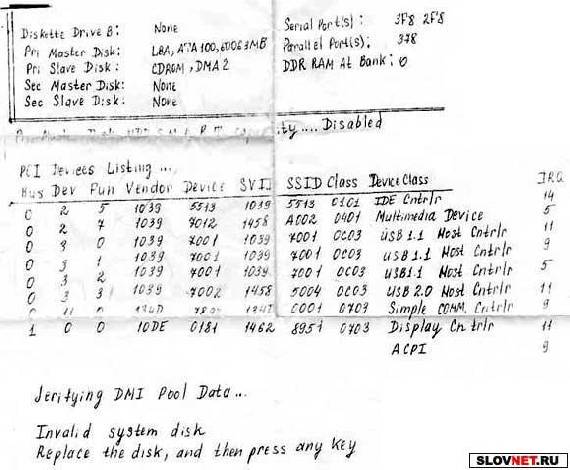 Diskette Drive B: None Serial Port(s): 3F8 2F8
Pri Master Disk: LBA, ATA 100, 60063MB Parallel Port(s): 378
Pri Slave Disk: CDROM, DMA 2 DDR RAM At Bank: 0
Sec Master Disk: None
Sec Slave Disk: None
Disabled
PCI Devices Listing ...
Bus Dev Fun Vendor Device SVID SSID Class Device Class IRQ
0 2 5 1039 5513 1039 5513 0101 IDE Cntrlr 14
0 2 7 1039 7012 1458 A002 0401 Multimedia Device 5
0 3 0 1039 7001 1039 7001 0C03 USB 1.1 Host Cntrlr 11
0 3 1 1039 7001 1039 7001 0C03 USB 1.1 Host Cntrlr 9
0 3 2 1039 7001 1039 7001 0C03 USB 1.1 Host Cntrlr 5
0 3 3 1039 7002 1458 5004 0C03 USB 2.0 Host Cntrlr 11
0 0703 Simple COMM. Cntrlr 9
1 0 0 10DE 0181 1462 8951 0703 Display Cntrlr 11
ACPI 9
Verifying DMI Pool Data ...
Invalid system disk
Replace the disk, and then press any key
SLOVNET.RU